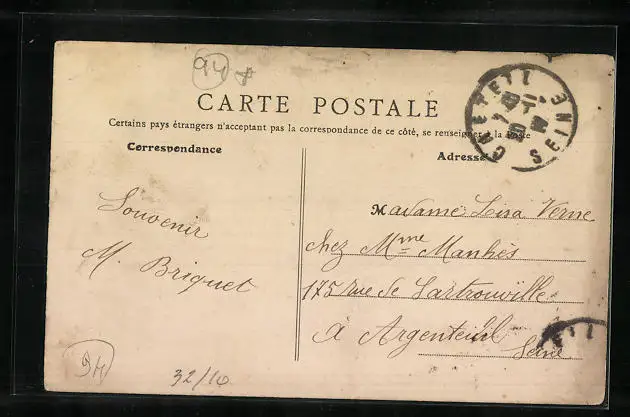 94
CARTE POSTALE
Certains pays étrangers n'acceptant pas la correspondance de ce côté, se renseigner à la Poste
Correspondance
Adresse
CRETEIL
SEINE
Souvenir
M. Briquet
Madame Lisa Verne
chez Mme Manhès
175 rue de Sartrouville
à Argenteuil
Seine
94
32/10